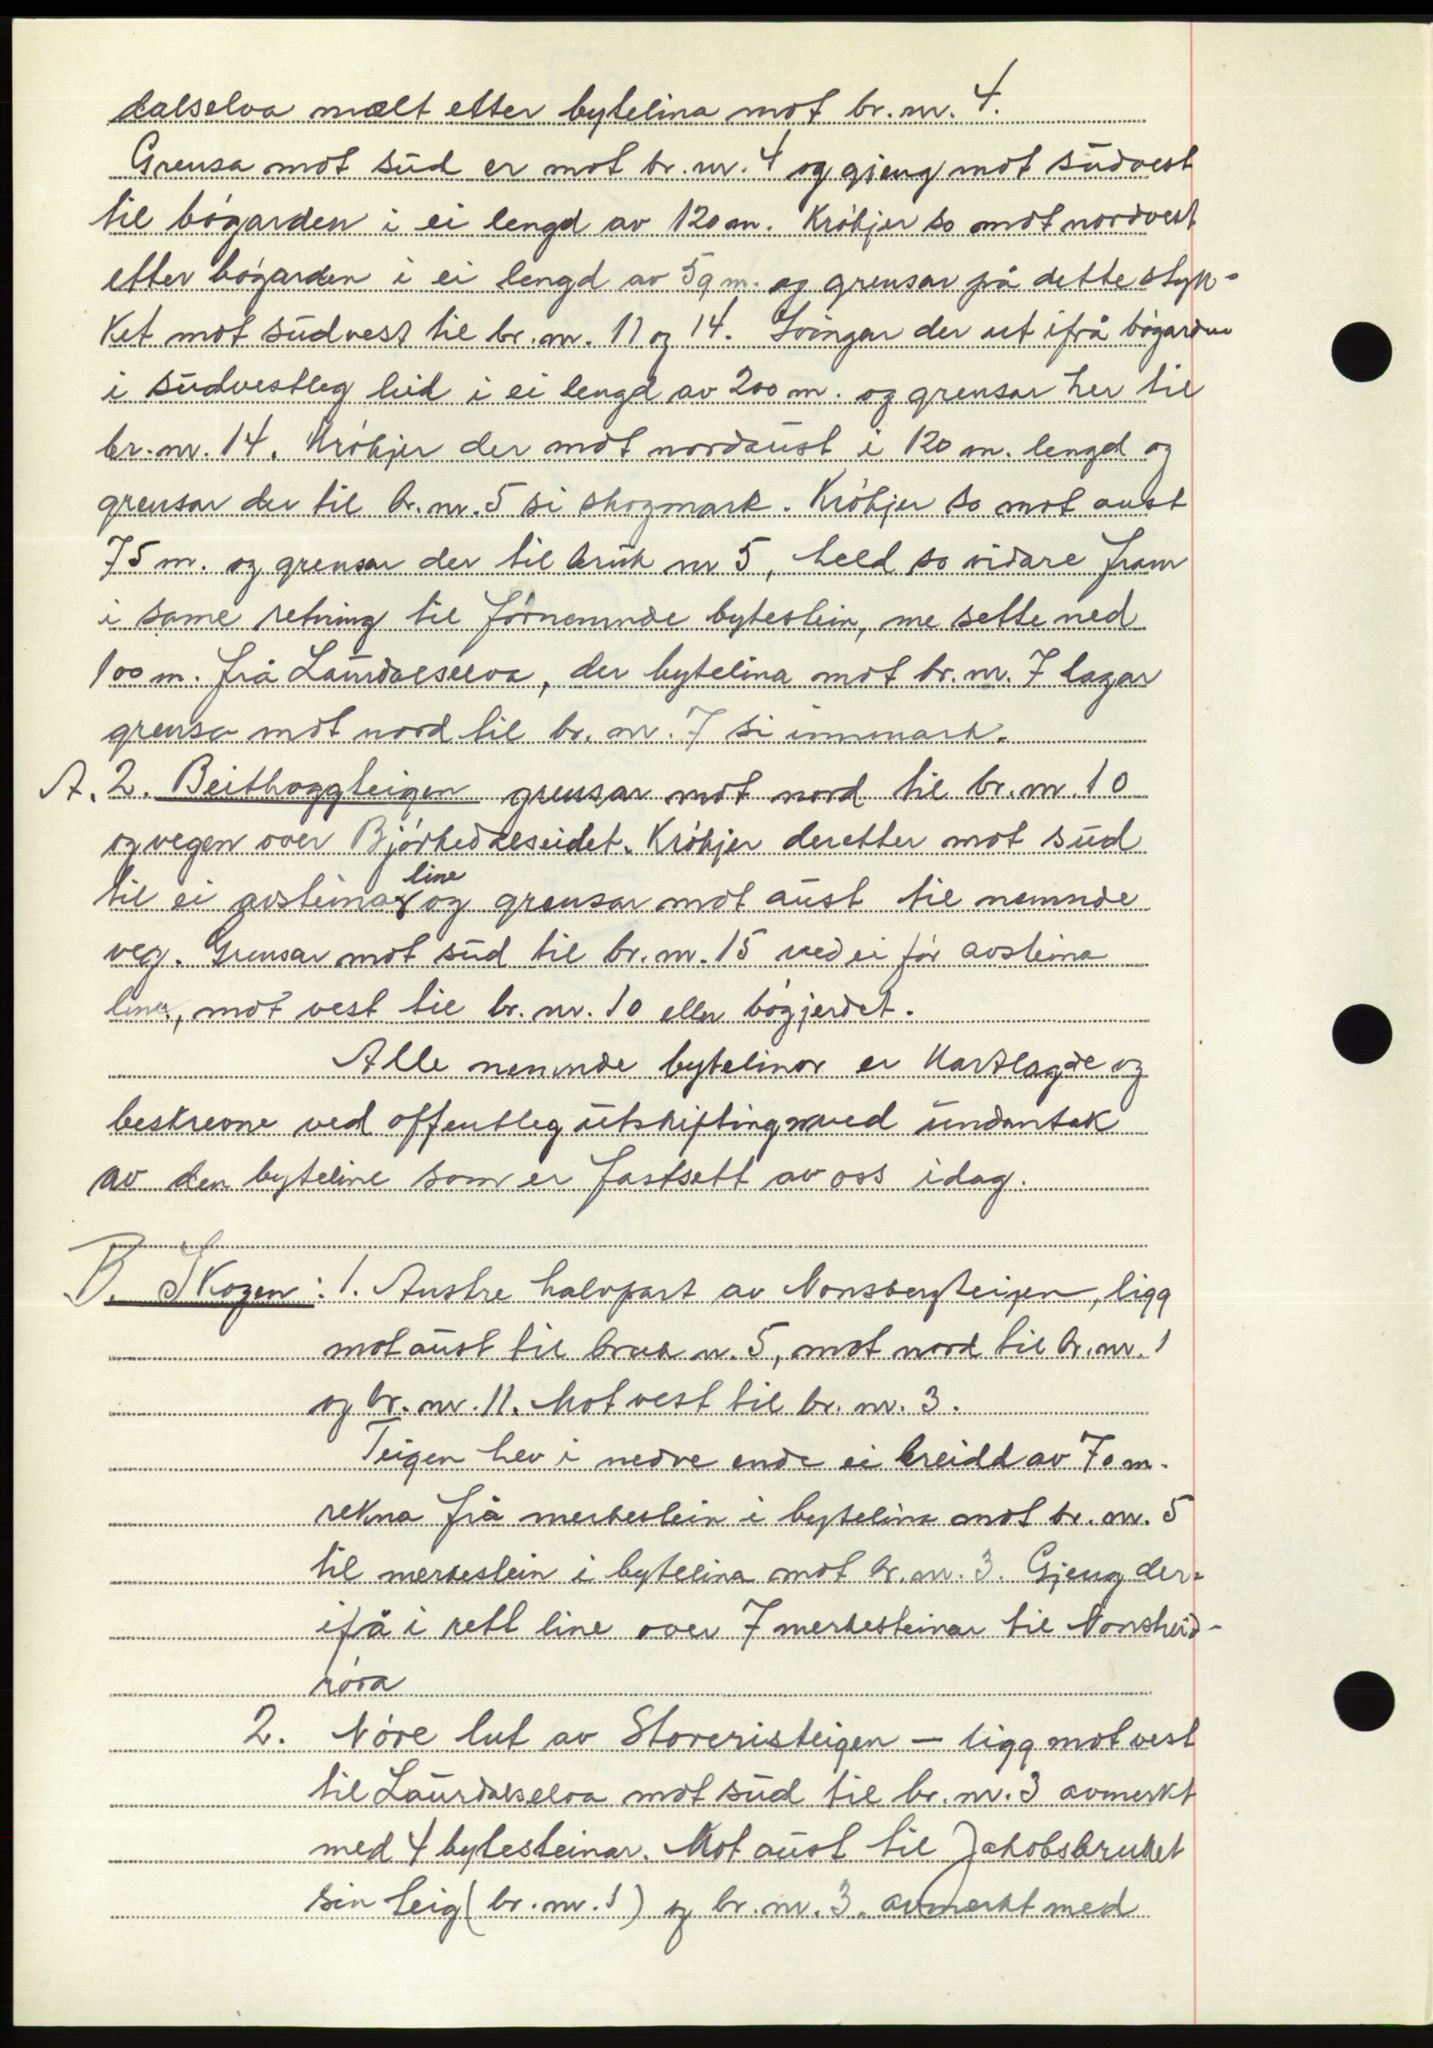 dalselva mælt etter bytelina mot br. nr. 4.
Grensa mot sud er mot br. nr. 4 og gjeng mot sudvest
til bøgarden i ei lengd av 120 m. Krøkjer so mot nordvest
etter bøgarden i ei lengd av 59 m. og grensar på dette styk-
ket mot sudvest til br. nr. 11 og 14. Svingar der ut ifrå bøgarden
i sudvestleg leid i ei lengd av 200 m. og grensar her til
br. nr. 14. Krøkjer der mot nordaust i 120 m. lengd og
grensar der til br. nr. 5 si skogmark. Krøkjer so mot aust
75 m. og grensar der til bruk nr 5, held so vidare fram
i same retning til førnemnde bytestein, me sette ned
100 m. frå Laurdalselva, der bytelina mot br. nr. 7 lagar
grensa mot nord til br. nr. 7 si innmark.
A. 2. Beithoggteigen grensar mot nord til br. nr. 10
og vegen over Bjørkedalseidet. Krøkjer deretter mot sud
line
til ei avsteina og grensar mot aust til nemnde
veg. Grensar mot sud til br. nr. 15 ved ei før avsteina
line, mot vest til br. nr. 10 eller bøgjerdet.
Alle nemnde bytelinor er kartlagde og
beskrevne ved offentleg utskifting med undantak
av den byteline som er fastsett av oss idag.
B. Skogen: 1. Austre halvpart av Nonsbergteigen, ligg
mot aust til bruk n. 5, mot nord til br. nr. 1
og br. nr. 11. Mot vest til br. nr. 3.
Teigen hev i nedre ende ei breidd av 70 m.
rekna frå merkestein i bytelina mot br. nr. 5
til merkestein i bytelina mot br. nr. 3. Gjeng der-
ifå i rett line over 7 merkesteinar til Nonsheid-
røra
2. Nøre lut av Storeristeigen — ligg mot vest
til Laurdalselva mot sud til br. nr. 3 avmerkt
med 4 bytesteinar. Mot aust til Jakobsbruket
sin teig (br. nr. 1) og br. nr. 3. avmerkt med